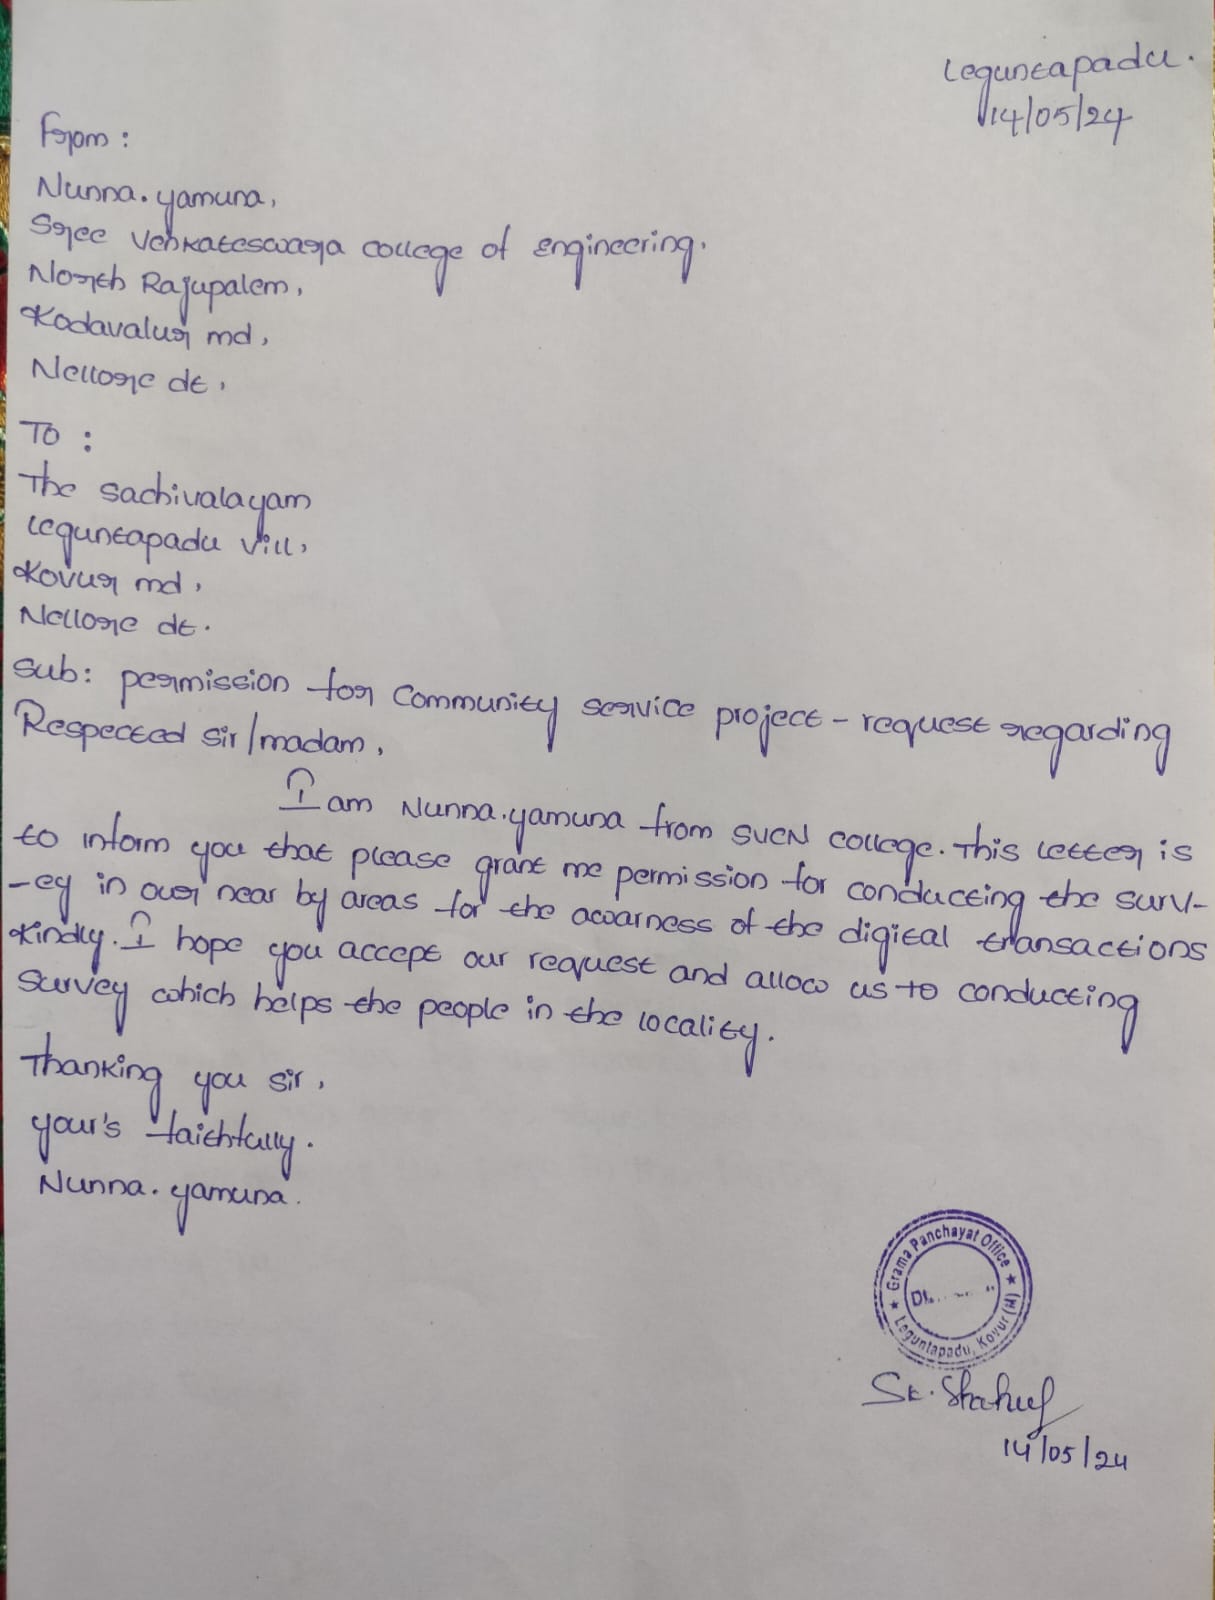 Leguntapadu.
14/05/24
From :
Nunna. yamuna,
Sree Venkateswara college of engineering.
North Rajupalem,
Kodavalur md,
Nellore dt.
To :
The sachivalayam
Leguntapadu Vill,
Kovur md,
Nellore dt.
Sub: permission for Community service project - request regarding
Respected Sir/madam,
I am Nunna.yamuna from SVCN college. This letter is
to inform you that please grant me permission for conducting the surv-
-ey in over near by areas for the awarness of the digital transactions
Kindly. I hope you accept our request and allow us to conducting
Survey which helps the people in the locality.
Thanking you sir,
your's faithfully.
Nunna. yamuna.
★ Grama Panchayat Office ★
Leguntapadu, Kovur (M)
Sk.
14/05/24